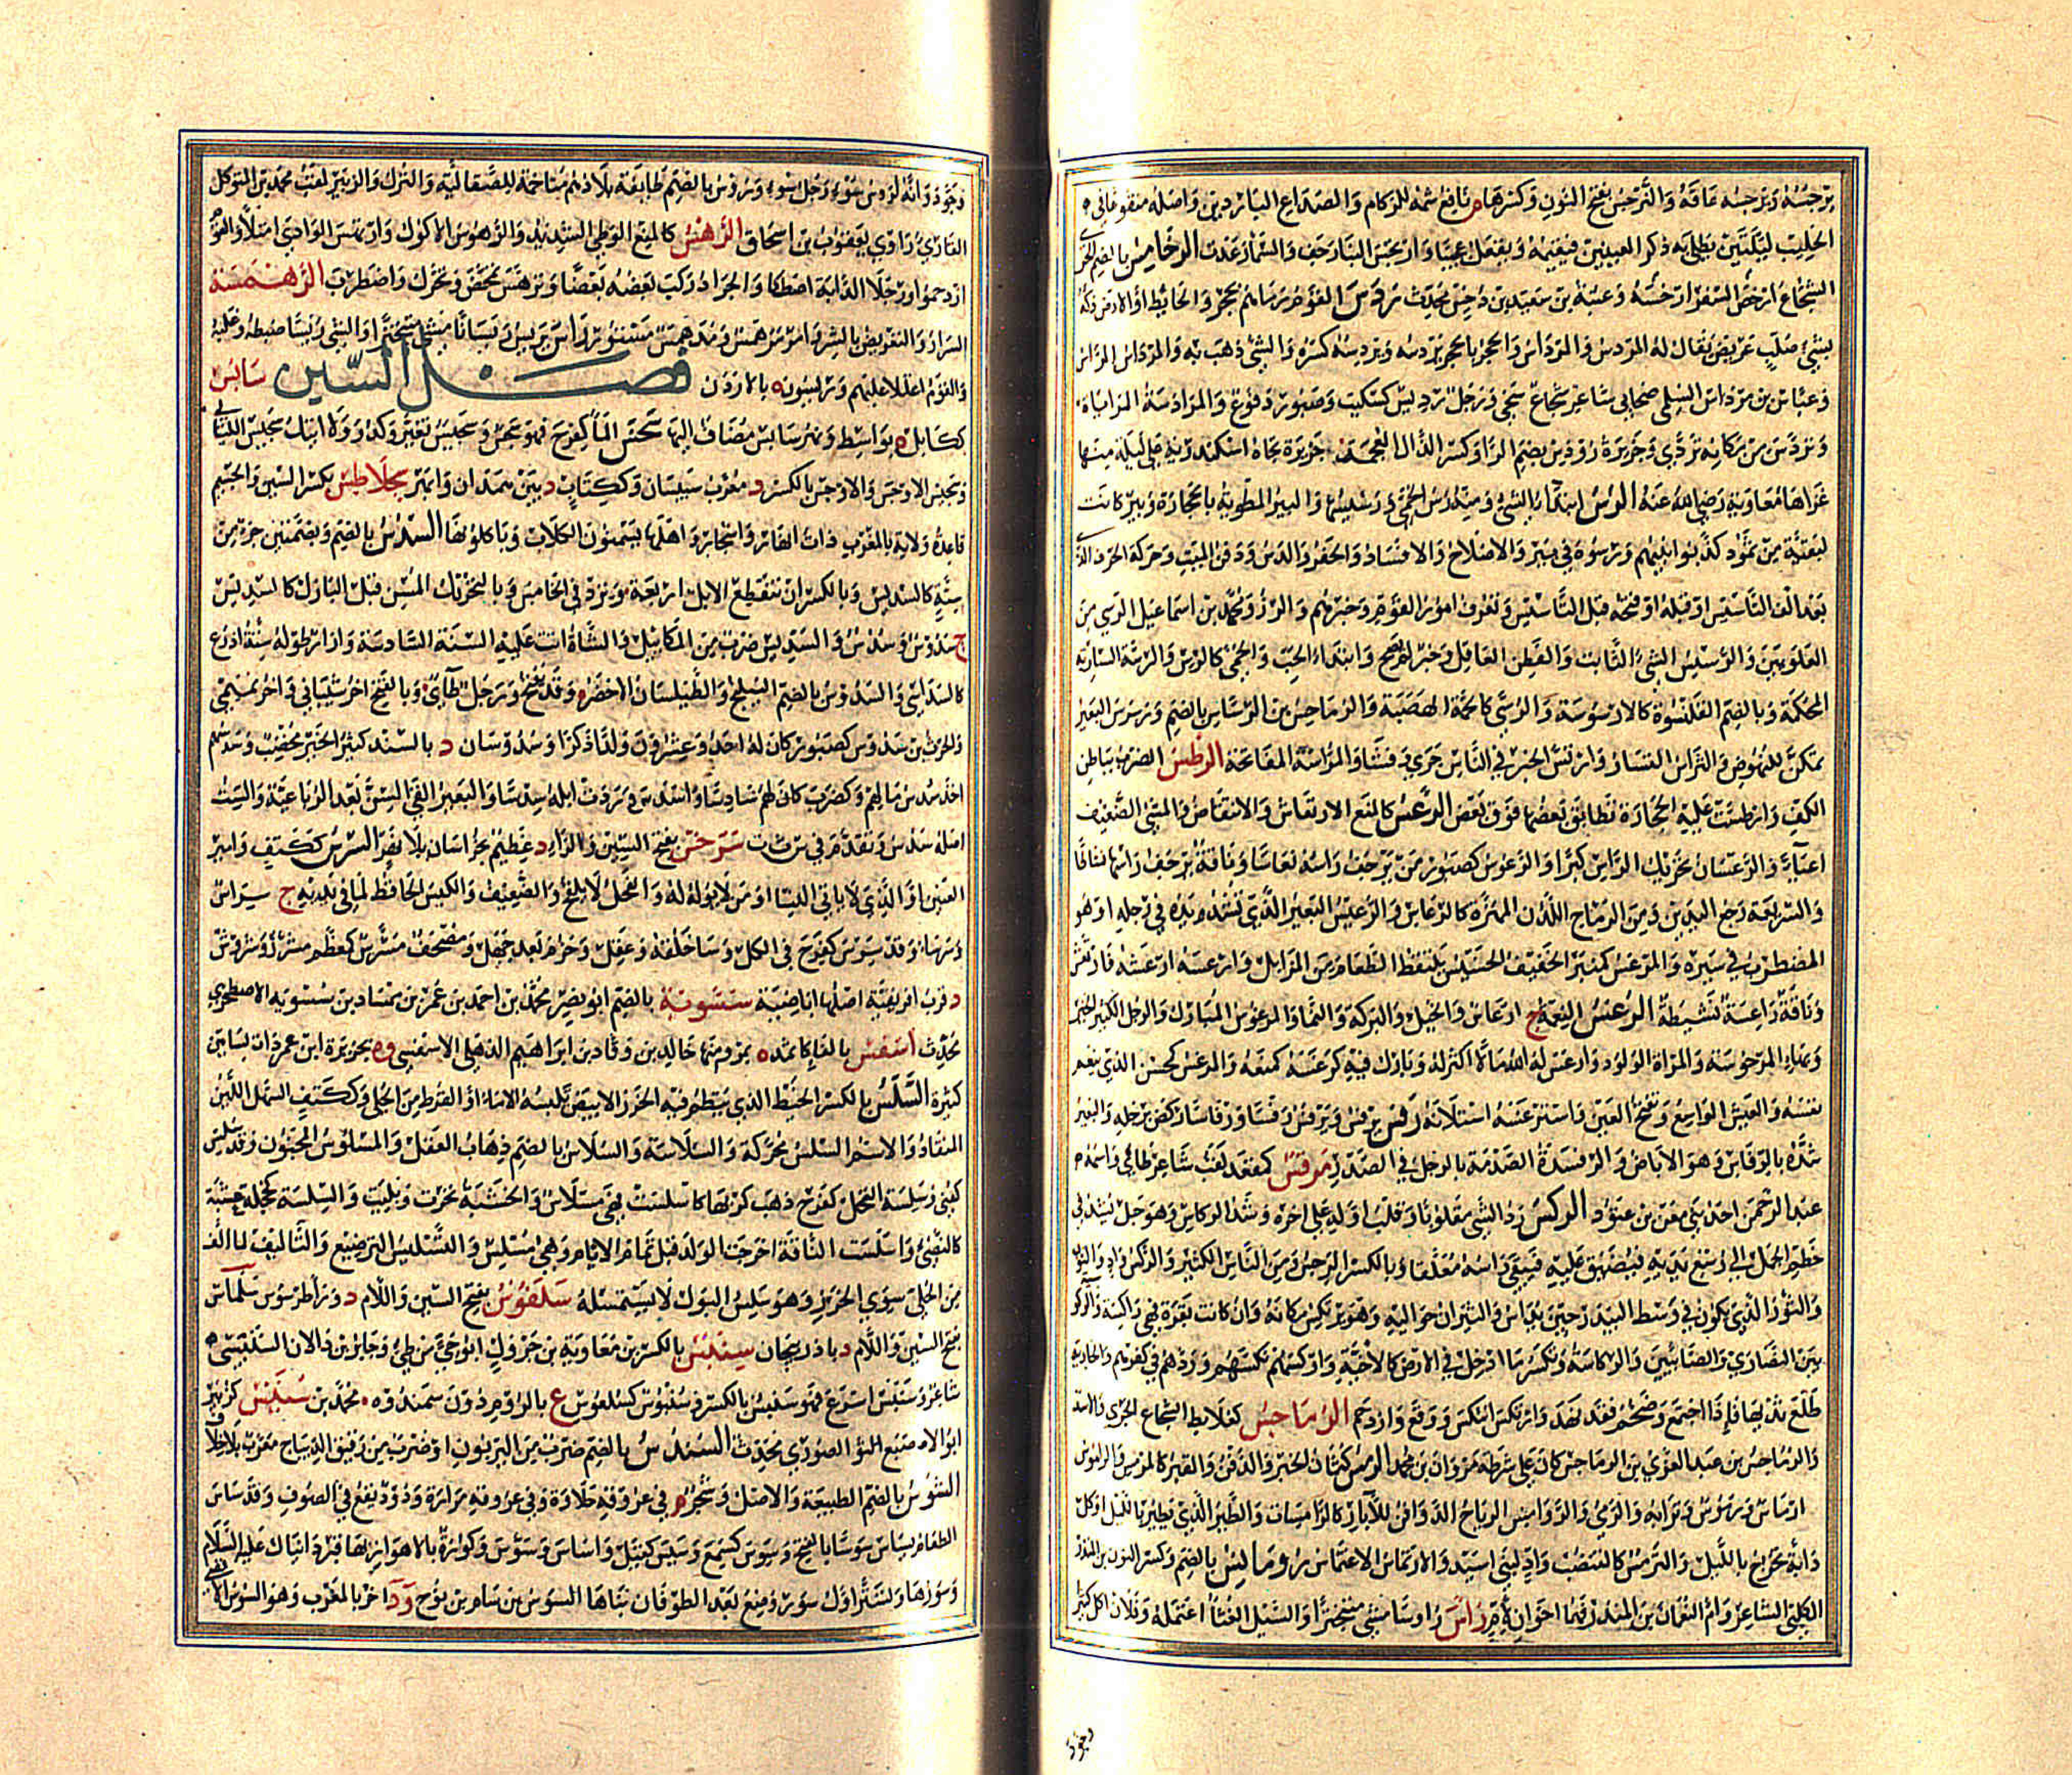 يرجسه ويرجسه عاقه والنرجس بفتح النون وكسرها م نافع شمه للزكام والصداع الباردين واصله منقوعا في
الحليب ليلتين يطلى به ذكر العنين فيقيمه ويفعل عجيبا وارتجس البناء رجف والسماء رعدت الرخامس بالضم
الشجاع ارخس السعر ارخصه وعتبة بن سعيد بن رخس محدث ردس القوم رماهم بحجر والحائط والارض دكه
بشيء صلب عريض يقال له المردس والمرداس والحجر بالحجر يردسه ويردسه كسره والشيء ذهب به والمرداس الراس
وعباس بن مرداس السلمي صحابي شاعر شجاع سخي ورجل رديس كسكيت وصبور دفوع والمرادسة المراماة
وتردس من مكانه تردى وجزيرة رودس بضم الراء وكسر الذال المعجمة جزيرة تجاه اسكندرية على ليلة منها
غزاها معاوية رضي الله عنه الرس ابتداء الشيء ومنه رس الحمى ورسيسها والبير المطوية بالحجارة وبير كانت
لبقية من ثمود كذبوا نبيهم ورسوه في بير والاصلاح والافساد والحفر والدس ودفن الميت وحركة الحرف الذي
بعد الف التاسيس او فتحه قبل التاسيس وتعرف امور القوم وخبرهم والرز ومحمد بن اسماعيل الرسي من
العلويين والرسيس الشيء الثابت والفطن العاقل وخبر لم يصح وابتداء الحب والحمى كالرس والرسة السارية
المحكمة وبالضم القلنسوة كالارسوسة والرسى كالحمى الهضبة والرماحس بن الرسارس بالضم ورسرس البعير
تمكن للنهوض والتراس التسار وارتس الخبر في الناس جرى وفشا والمراسة المفاتحة الرطس الضرب بباطن
الكف وارطست عليه الحجارة تطابق بعضها فوق بعض الرعس كالمنع الارتعاش والانتفاض والمشي الضعيف
اعياء والرعسان تحريك الراس كبرا والرعوس كصبور من يرجف راسه نعاسا وناقة يرجف راسها نشاطا
والسريعة رجع اليدين ومن الرماح اللدن المهزة كالرعاس والرعيس البعير الذي تشد يده في رجله او هو
المضطرب في سيره والمرعس كمنبر الخفيف الخسيس يلتقط الطعام من المزابل وارعسه ارعشه فارتعش
وناقة راعسة نشيطة الرغس النعمة ج ارغاس والخير والبركة والنماء والمرغوس المبارك والرجل الكثير الخير
وبهاء المرغوسة والمراة الولود وارغس له الله مالا اكثر له وبارك فيه كرغسه كمنعه والمرغس كمحسن الذي ينعم
نفسه والعيش الواسع وتفتح الغين واسترغسه استلانه رفس يرفس ويرفس رفسا ورفاسا ركض برجله والبعير
شده بالرفاس وهو الاباض والرفسة الصدمة بالرجل في الصدر مرقس كمقعد لقب شاعر طائي واسمه
عبد الرحمن احد بني معن بن عتود الركس رد الشيء مقلوبا وقلب اوله على اخره وشد الركاس وهو حبل يشد في
خطم الجمل الى رسغ يديه فيضيق عليه فيبقى راسه معلقا وبالكسر الرجس ومن الناس الكثير والراكس واد
والثور الذي يكون في وسط البيدر حين يداس والثيران حواليه وهو يرتكس مكانه وان كانت بقرة فهي راكسة والركوسية
بين النصارى والصابئين والركاسة وتكسر ما ادخل في الارض كالاخية واركسهم نكسهم وردهم في كفرهم والجارية
طلع ثديها فاذا اجتمع وضخم فقد نهد وارتكس انتكس ووقع وازدحم الرماحس كعلابط الشجاع الجري والاسد
والرماحس بن عبد العزى بن الرماحس كان على شرطة مروان بن محمد الرمس كتمان الخبر والدفن والقبر كالمرمس والراموس
ارماس ورموس وترابه والرمي والروامس الرياح الدوافن للآثار كالرامسات والطير الذي يطير بالليل او كل
دابة تخرج بالليل والترمس كالتنضب واد لبني اسيد والارتماس الاغتماس رومانس بالضم وكسر النون بن المنذر
الكلبي الشاعر وام النعمان بن المنذر فهما اخوان لام راس روسا مشى متبخترا والسيل الغثاء احتمله وفلان اكل كثيرا
وجود
وجود وانه لروس سوء رجل سوء وروس بالضم طايفة بلادهم متاخمة للصقالبة والترك والزبير لقب محمد بن المتوكل
القاري راوي يعقوب بن اسحاق الرهس كالمنع الوطي الشديد والرهوس الاكول وارتهس الوادي امتلا والقوم
ازدحموا ورجلا الدابة اصطكا والجراد ركب بعضه بعضا وترهس تمخض وتحرك واضطرب الرهمسة
السرار والتعريض بالشر وامر مرهمس ومدهمس مستور راس يريس ريسا وريسانا مشى متبخترا والشيء ريسا ضبطه وغلبه
والقوم اعتلا عليهم ويريسون ة بالاردن فصل السين سابس
ككابل ة بواسط ونهر سابس مضاف اليها سجس الماء كفرح فهو سجس وسجيس تغير وكدر ولا اتيك سجيس الليالي
وسجيس الاوجس والاوجس بالكسر د معرب سيستان وككتاب د بين همدان وابهر سجلاطس بكسر السين والجيم
قاعدة ولاية بالمغرب ذات انهار واشجار واهلها يسمنون الكلاب وياكلونها السدس بالضم وبضمتين جزء من
ستة كالسديس وبالكسر ان تنقطع الابل اربعة وترد في الخامس وبالتحريك السن قبل البازل كالسديس
ج سدوس وسدس والسديس ضرب من المكاييل والشاة اتت عليه السنة السادسة وازار طوله ستة اذرع
كالسداسي والسدوس بالضم النيلج والطيلسان الاخضر وقد يفتح ورجل طائي وبالفتح اخر شيباني واخر تميمي
والحرث بن سدوس كصبور كان له احد وعشرون ولدا ذكرا وسدوسان د بالسند كثير الخير مخصب وسدسهم
اخذ سدس مالهم وكضرب كان لهم سادسا واسدس وردت ابله سدسا والبعير القى السن بعد الرباعية والست
اصله سدس وتقدم في س ت ت سرخس بفتح السين والراء د عظيم بخراسان بلا نهر السرس ككتف وامير
العنين او الذي لا ياتي النسا او من لا يولد له والفحل لا يلقح والضعيف والكيس الحافظ لما في يديه ج سراس
وسرساء وقد سرس كفرح في الكل وساء خلقه وعقل وحزم بعد جهل ومصحف مسرس كمعظم مشرز وسروس
د قرب افريقية اهلها اباضية سسنوية بالضم ابو نصر محمد بن احمد بن عمر بن ممشاد بن سسنوية الاصطخري
محدث اسفس بالفاء كاثمد ة بمرو منها خالد بن رقاد بن ابراهيم الذهلي الاسفسي وة بجزيرة ابن عمر ذات بساتين
كثيرة السلس بالكسر الخيط الذي ينظم فيه الخرز الابيض تلبسه الاماء او القرط من الحلي وككتف السهل اللين
المنقاد والاسم السلس محركة والسلاسة والسلاس بالضم ذهاب العقل والمسلوس المجنون وقد سلس
كعني وسلست النخل كفرح ذهب كربها كاسلست فهي مسلاس والخشبة نخرت وبليت والسلسة كخجلة عشبة
كالنصي واسلست الناقة اخرجت الولد قبل تمام الايام وهي مسلس والتسليس الترصيع والتاليف لما الف
من الحلي سوى الخرز وهو سلس البول لا يستمسك سلعوس بفتح السين واللام د وراء طرسوس سلماس
بفتح السين واللام د باذربيجان سنبس بالكسر بن معاوية بن جرول ابو حي من طيء وجابر بن رالان السنبسي
شاعر وسنبس اسرع فهو سنبس بالكسر وسنبوس كسلعوس ع بالروم دون سمندوه محمد بن سنيس كزبير
ابو الاصبغ الصوري محدث السندس بالضم ضرب من البزيون او ضرب من رقيق الديباج معرب بلا خلاف
السوس بالضم الطبيعة والاصل وشجر م في عروقه حلاوة وفي عروقه مرارة ودود يقع في الصوف وقد ساس
الطعام يساس سوسا بالفتح وسوس كسمع وسيس كقيل واساس وسوس وكورة بالاهواز بها قبر دانيال عليه السلام
وسورها وسور تستر اول سور وضع بعد الطوفان بناها السوس بن سام بن نوح ود آخر بالمغرب وهو السوس الاقصى